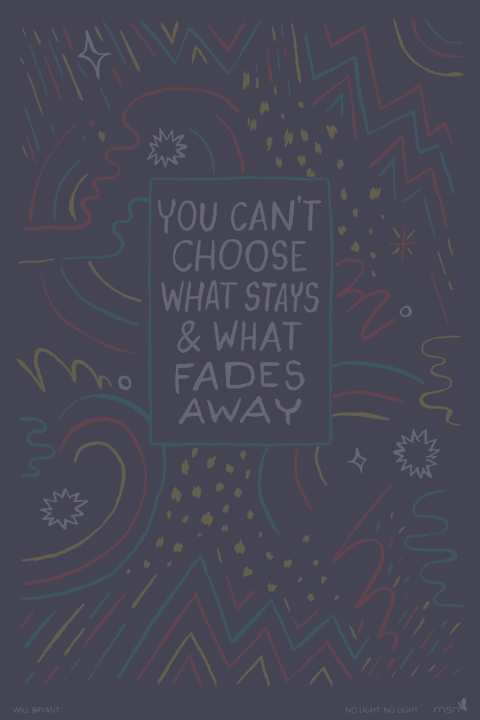 YOU CAN'T
CHOOSE
WHAT STAYS
& WHAT
FADES
AWAY
WILL BRYANT
NO LIGHT NO LIGHT
msn